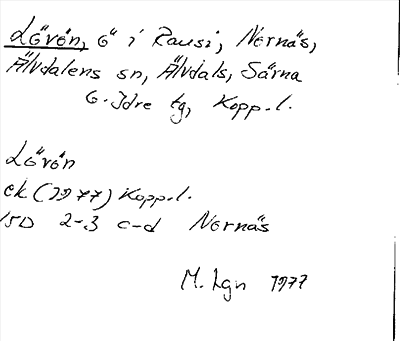 Lövön, ö i Rausi, Nornäs,
Älvdalens sn, Älvdals, Särna
o. Idre tg, Kopp.l.
Lövön
ek (1977) Kopp.l.
15D 2-3 c-d Nornäs
M. Lgn 1977